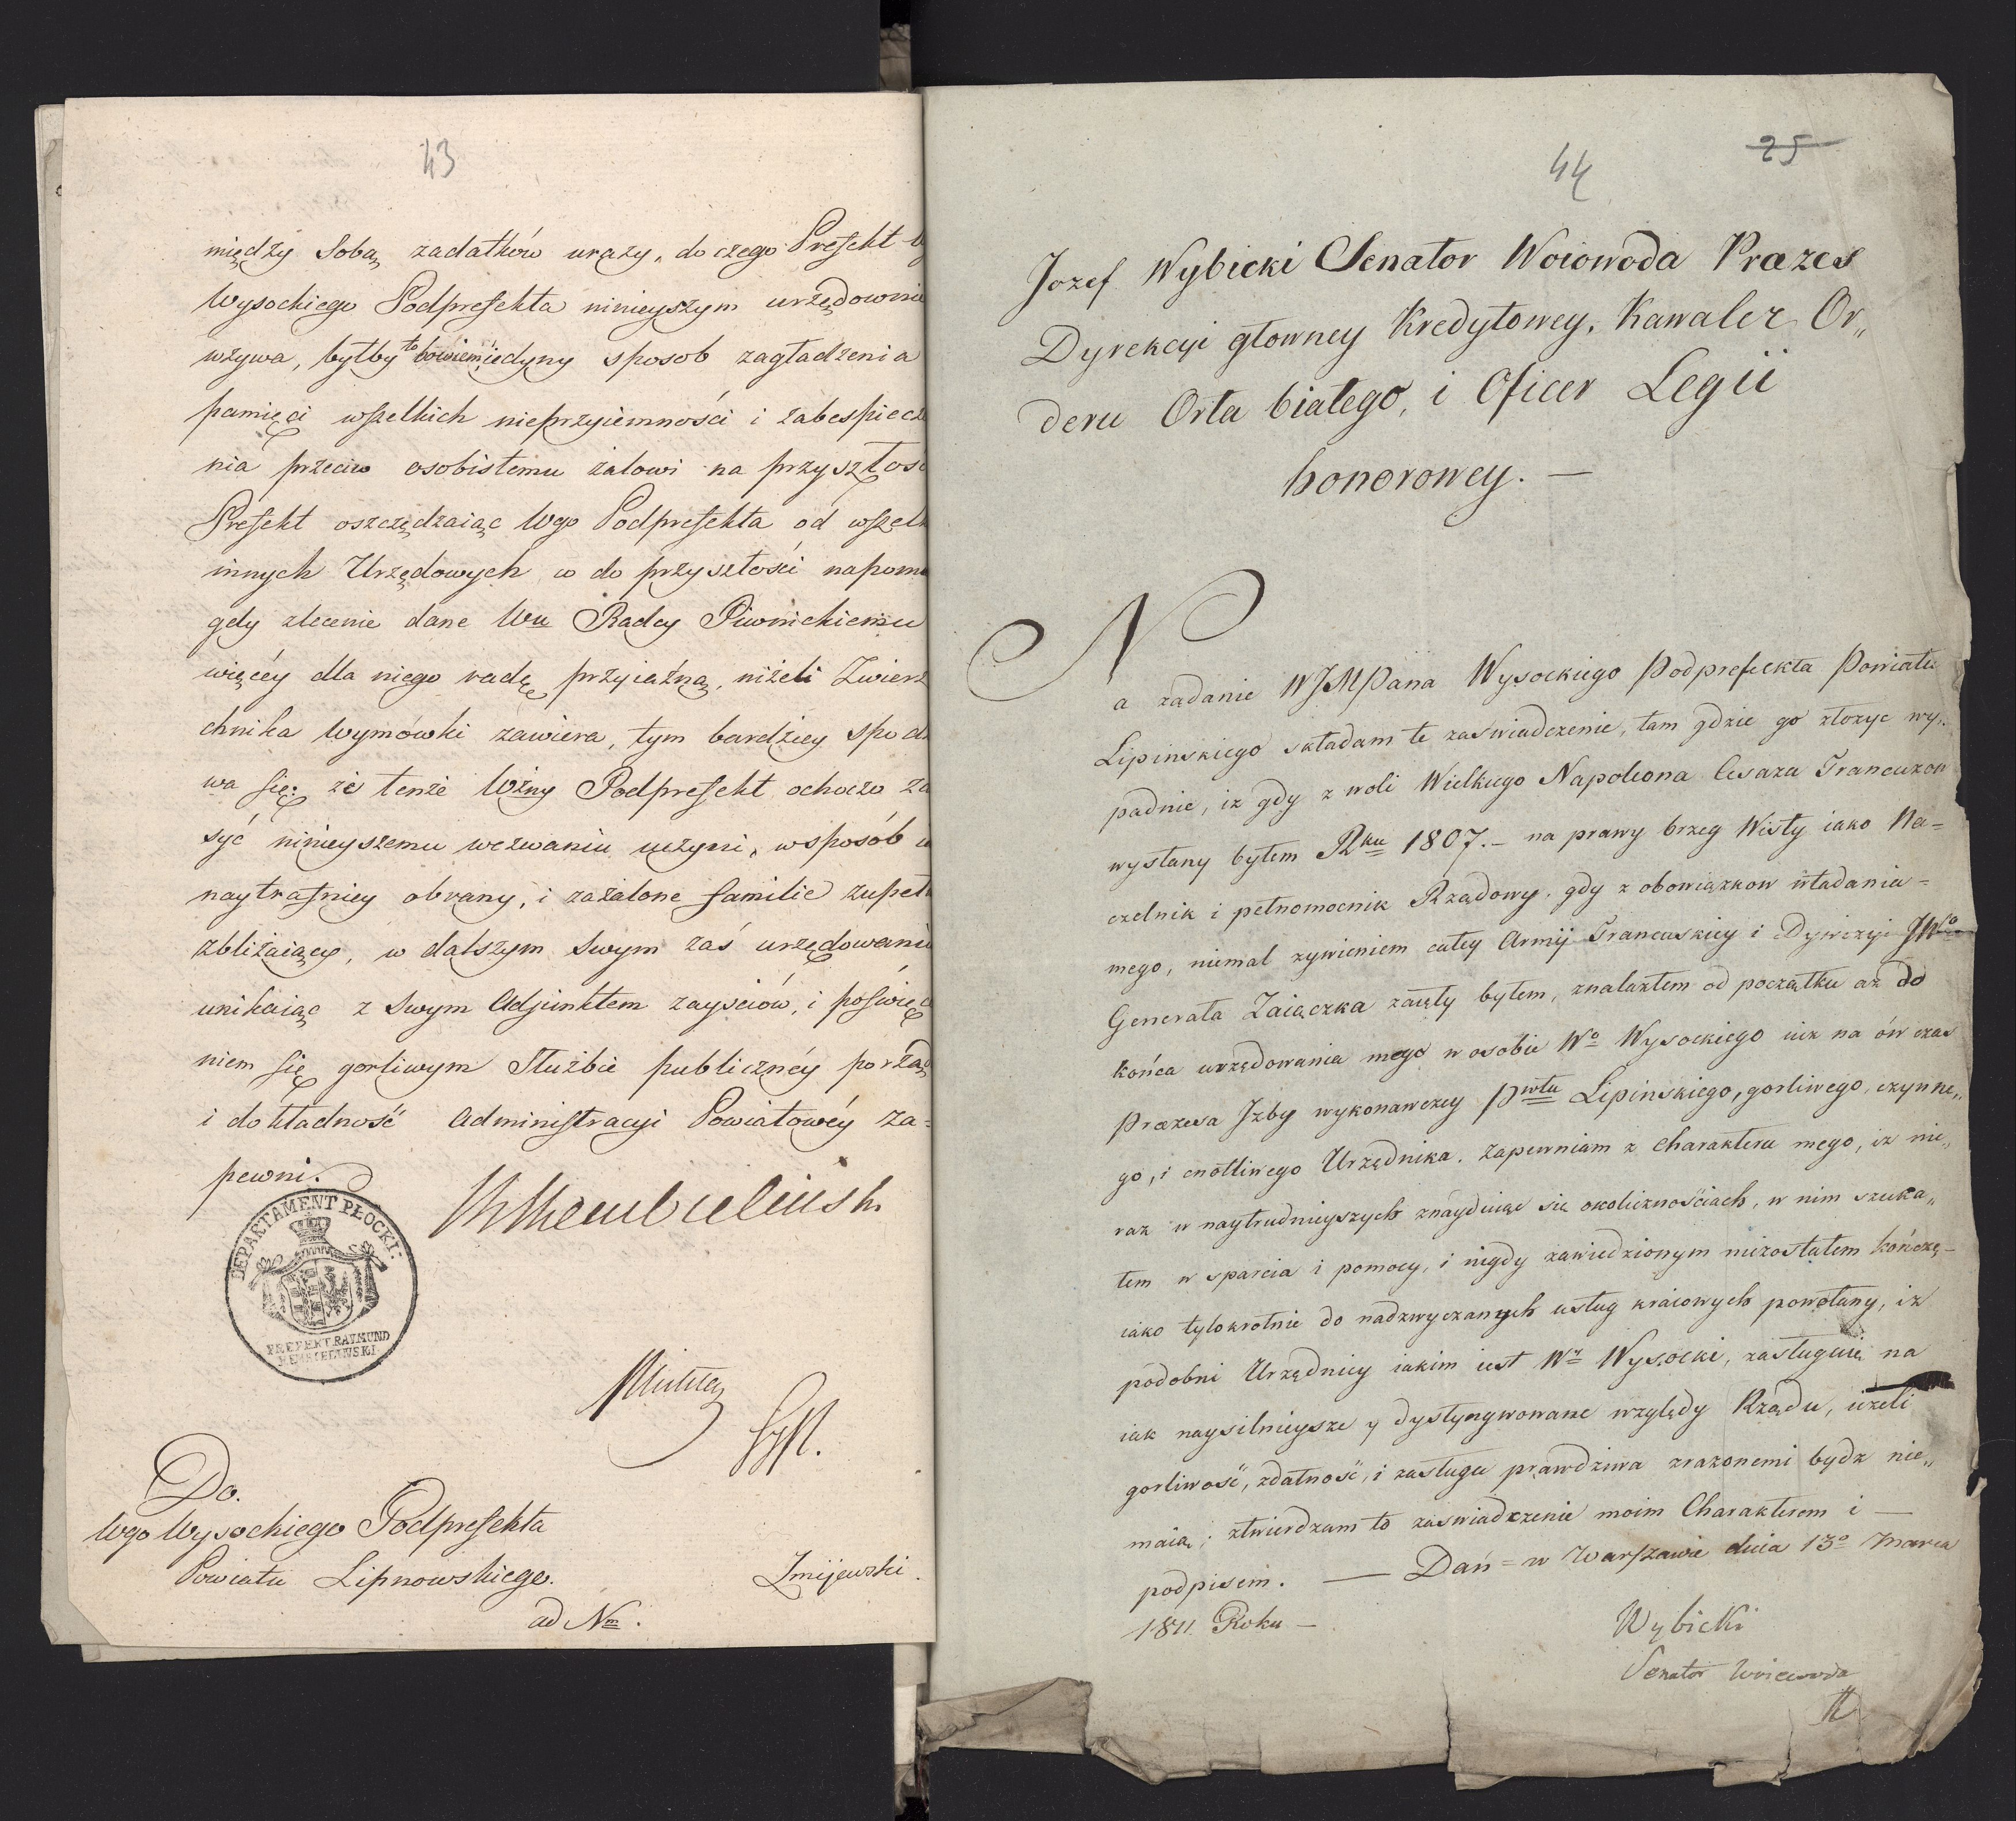 43
między Sobą zadatków urazy, do czego Prefekt
Wysockiego Podprefekta ninieyszym urzędownie
wzywa, byłby to bowiem iedyny sposob zagładzenia
pamięci wszelkich nieprzyiemności i zabespiecze
nia przeciw osobistemu żalowi na przyszłość
Prefekt oszczędzaiąc Wgo Podprefekta od wszelk
innych Urzędowych co do przyszłości napom
gdy zlecenie dane Wu Radcy Piwnickiemu
więcéy dla niego radę przyiaźną, niżeli Zwierz
chnika wymówki zawiera, tym bardziey spodzie
wa się: że tenże Wżny Podprefekt ochoczo za
syć ninieyszemu wezwaniu uczyni, w sposób
naytrafniey obrany, i zażalone familie zupełn
zbliżaiący, w dalszym swym zaś urzędowaniu
unikaiąc z Swym Adjunktem zayściów, i poświęce
niem się gorliwym Służbie publicznéy porząd
i dokładność Administracyi Powiatowéy za=
pewni.
DEPARTAMENT PŁOCKI:
PREFEKT RAYMUND
REMBIELINSKI
R Rembielinsk
Do.
Wgo Wysockiego Podprefekta
Powiatu Lipnowskiego.
Zmijewski.
ad Nm.
44
25
Jozef Wybicki Senator Woiowoda Prezes
Dyrekcyi głowney Kredytowey, Kawaler Or„
deru Orła białego, i Oficer Legii
honorowey. —
Na żądanie WJMPana Wysockiego Podprefekta Powiatu
Lipinskiego składam te zaswiadczenie, tam gdzie go złozyc wy„
padnie, iz gdy z woli Wielkiego Napoleona Cesarza Francuzow
wysłany byłem Rku 1807. – na prawy brzeg Wisły iako Na=
czelnik i pełnomocnik Rządowy, gdy z obowiązkow władania=
mego, niemal zywieniem całey Armii Francuskiey i Dywizyi JWo
Generała Zaiączka zaięty byłem, znalazłem od początku aż do
końca urzędowania mego w osobie Wo Wysockiego iuż na ów czas
Prezesa Izby wykonawczey Pwtu Lipinskiego, gorliwego, czynne„
go, i cnotliwego Urzędnika. Zapewniam z charakteru mego, iz nie„
raz w naytrudnieyszych znayduiąc się okolicznościach, w nim szuka„
łem wsparcia i pomocy, i nigdy zawiedzionym niezostałem kończę—
iako tylokrotnie do nadzwyczanych usług kraiowych powołany, iz
podobni Urzędnicy iakim iest Wy Wysocki, zasługuią na
iak naysilnieysze y dystyngwowane względy Rządu, ieżeli
gorliwość, zdatność, i zasługa prawdziwa zrażonemi bydz nie„
maią; ztwierdzam to zaswiadczenie moim Charakterem i —
podpisem. — Dań = w Warszawie dnia 13o Marca
1811. Roku —
Wybicki
Senator Woiewoda